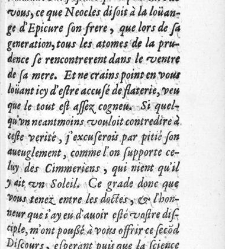 vous, ce que Neocles disoit à la loüan-
ge d'Epicure son frere, que lors de sa
generation, tous les atomes de la pru-
dence se rencontrerent dans le ventre
de sa mere. Et ne crains point en vous
loüant icy d'estre accusé de flaterie, veu
que le tout est assez cogneu. Si quel-
qu'un neantmoins vouloit contredire à
ceste verité, j'excuserois par pitié son
aueuglement, comme l'on supporte ce-
luy des Cimmeriens, qui nient qu'il
y ait un Soleil. Ce grade donc que
vous tenez entre les doctes, & l'hon-
neur que i'ay eu d'auoir esté vostre dis-
ciple, m'ont poussé à vous offrir ce secōd
Discours, esperant puis que la science